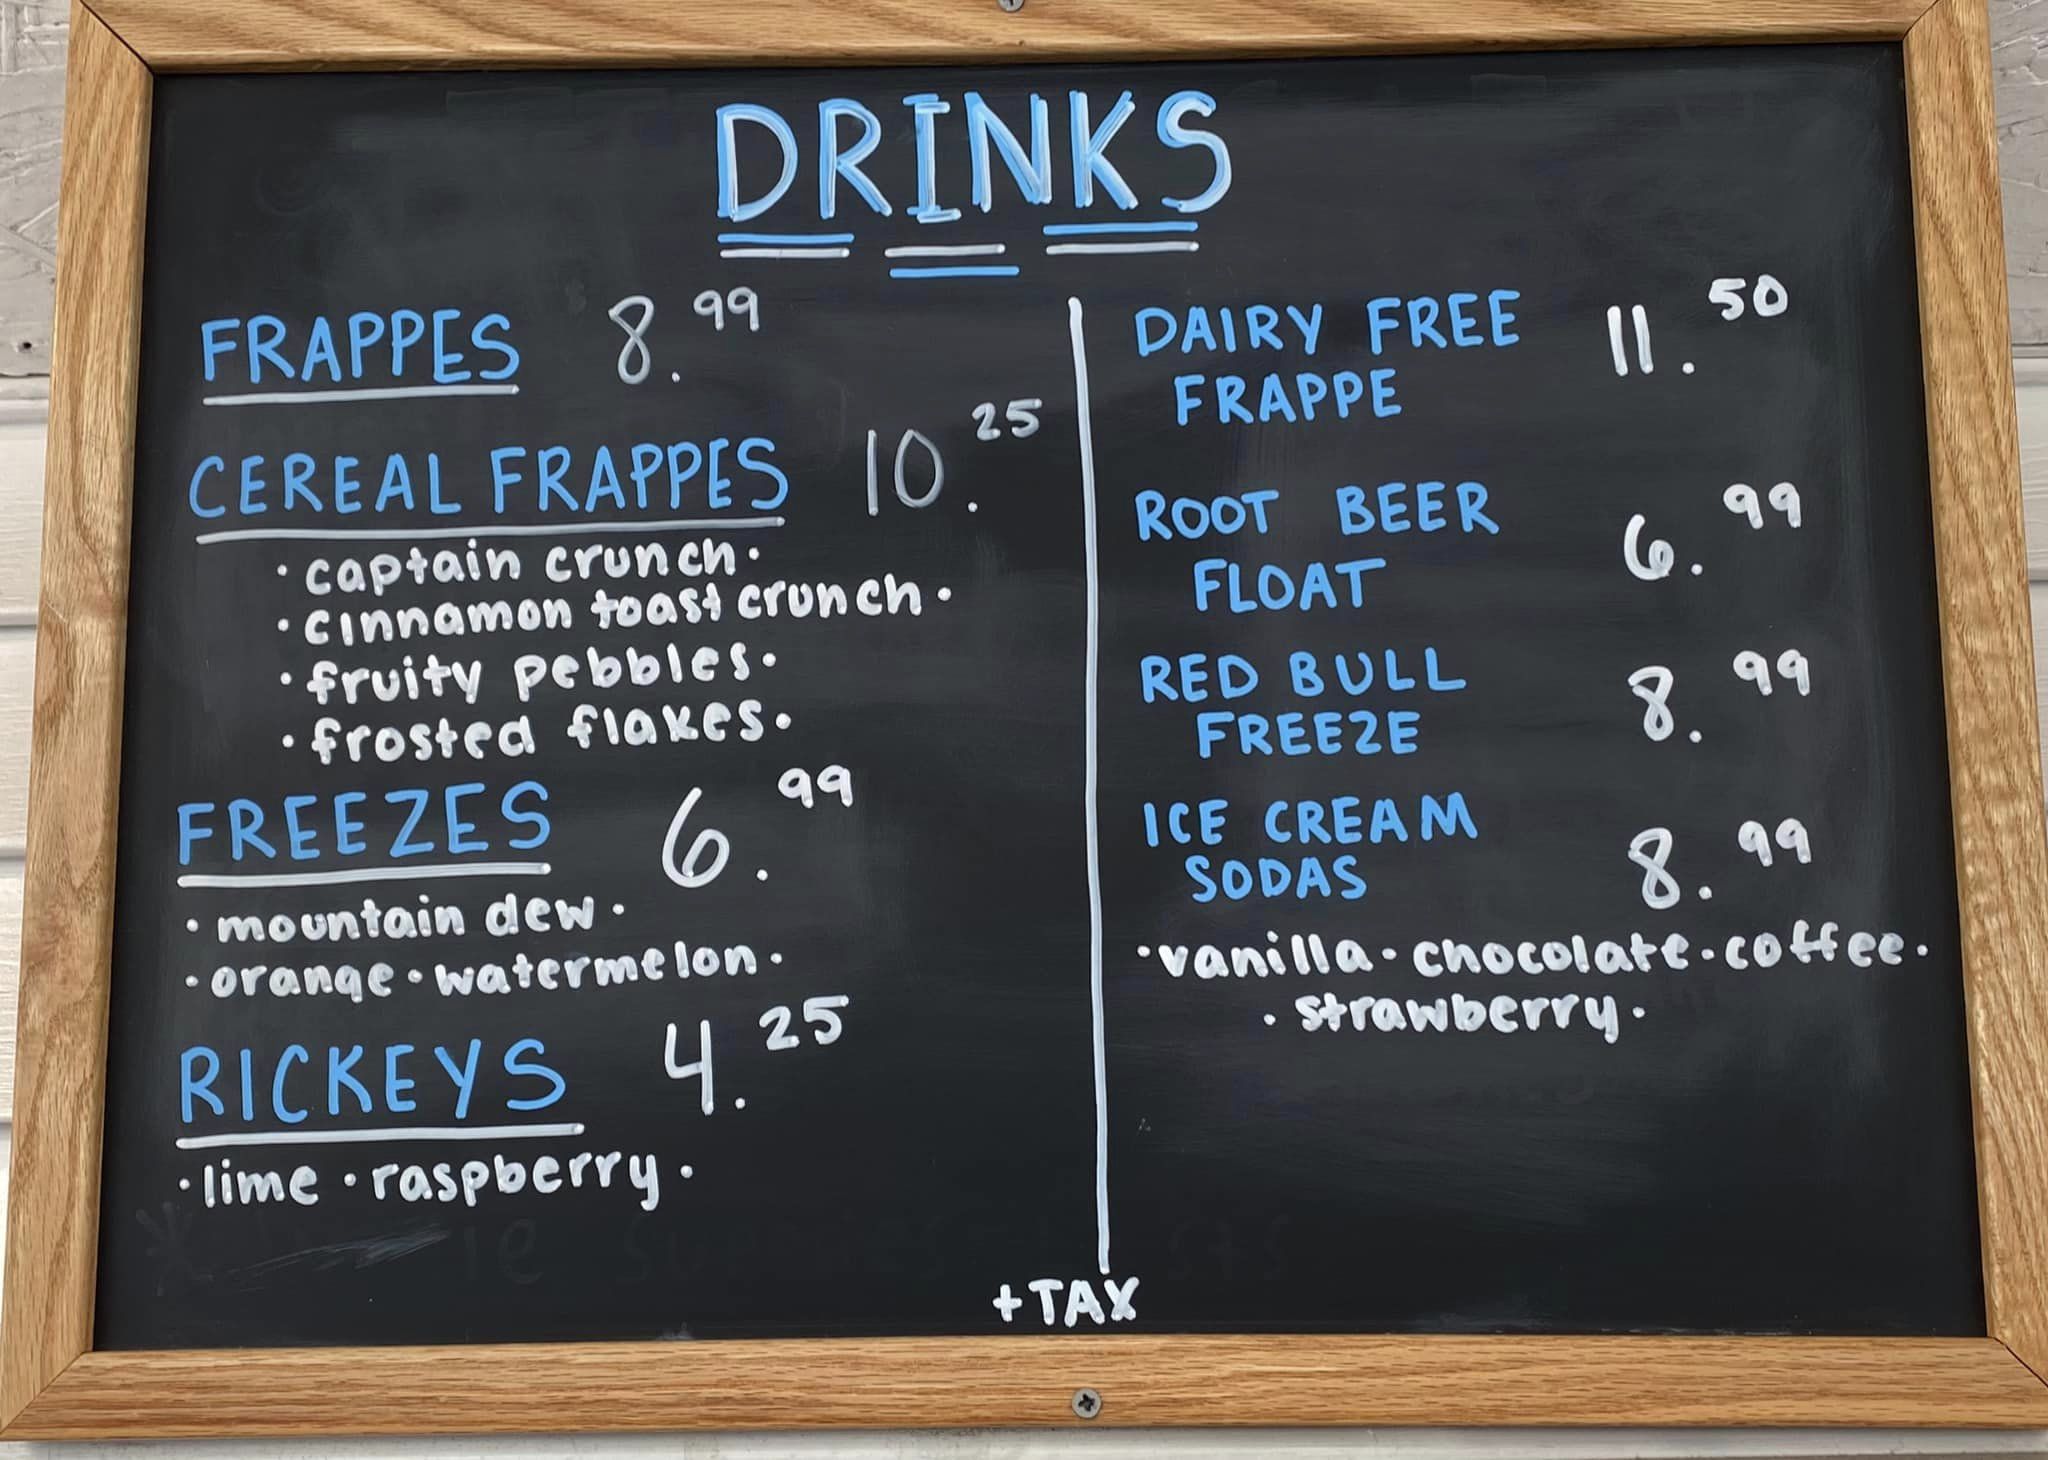 DRINKS
FRAPPES 8.99
CEREAL FRAPPES 10.25
• captain crunch •
• cinnamon toast crunch •
• fruity pebbles •
• frosted flakes •
FREEZES 6.99
• mountain dew •
• orange • watermelon •
RICKEYS 4.25
• lime • raspberry •
DAIRY FREE 11.50
FRAPPE
ROOT BEER
FLOAT 6.99
RED BULL
FREEZE 8.99
ICE CREAM
SODAS 8.99
• vanilla • chocolate • coffee •
• strawberry •
+ TAX